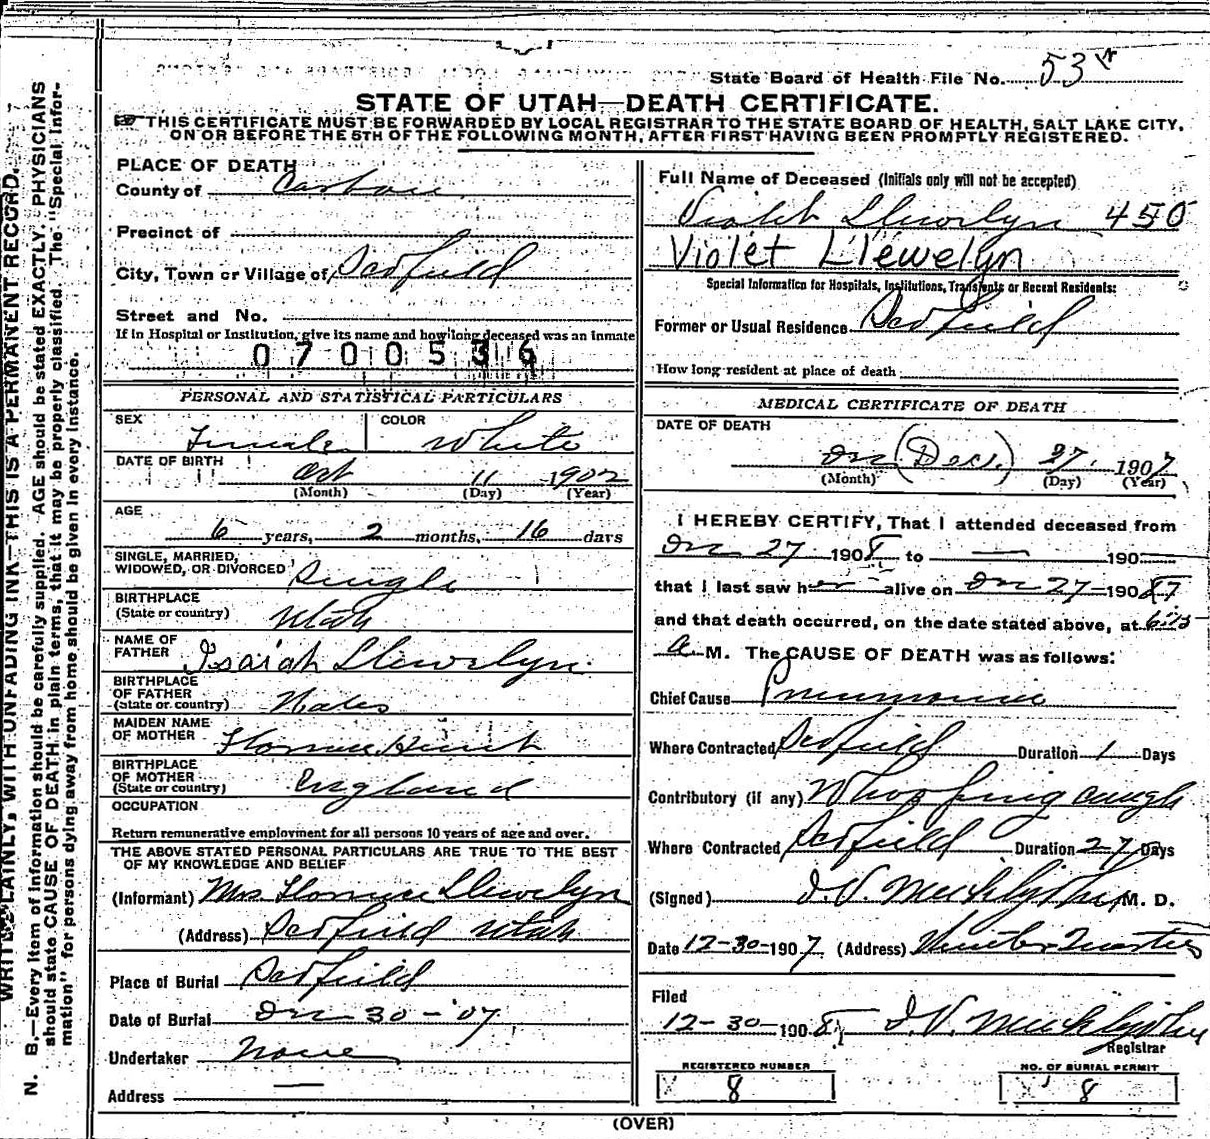 State Board of Health File No. 53
STATE OF UTAH—DEATH CERTIFICATE.
THIS CERTIFICATE MUST BE FORWARDED BY LOCAL REGISTRAR TO THE STATE BOARD OF HEALTH, SALT LAKE CITY,
ON OR BEFORE THE 5TH OF THE FOLLOWING MONTH, AFTER FIRST HAVING BEEN PROMPTLY REGISTERED.
PLACE OF DEATH
County of Carbon
Precinct of
City, Town or Village of Scofield
Street and No.
If in Hospital or Institution, give its name and how long deceased was an Inmate
0700536
PERSONAL AND STATISTICAL PARTICULARS
SEX Female COLOR White
DATE OF BIRTH Oct 11 1902
(Month) (Day) (Year)
AGE
6 years, 2 months, 16 days
SINGLE, MARRIED,
WIDOWED, OR DIVORCED Single
BIRTHPLACE
(State or country) Utah
NAME OF
FATHER Isaiah Llewelyn
BIRTHPLACE
OF FATHER
(State or country) Wales
MAIDEN NAME
OF MOTHER Florence
BIRTHPLACE
OF MOTHER
(State or country) England
OCCUPATION
Return remunerative employment for all persons 10 years of age and over.
THE ABOVE STATED PERSONAL PARTICULARS ARE TRUE TO THE BEST
OF MY KNOWLEDGE AND BELIEF
(Informant) Mrs Florence Llewelyn
(Address) Scofield Utah
Place of Burial Scofield
Date of Burial Dec 30 - '07
Undertaker None
Address —
Full Name of Deceased (Initials only will not be accepted)
Violet Llewelyn 450
Violet Llewelyn
Special Information for Hospitals, Institutions, Transients or Recent Residents:
Former or Usual Residence Scofield
How long resident at place of death
MEDICAL CERTIFICATE OF DEATH
DATE OF DEATH
Dec (Dec.) 27. 1907
(Month) (Day) (Year)
I HEREBY CERTIFY, That I attended deceased from
Dec 27 1908 to — 190
that I last saw her alive on Dec 27 1907
and that death occurred, on the date stated above, at 6:15
a. M. The CAUSE OF DEATH was as follows:
Chief Cause Pneumonia
Where Contracted Scofield Duration 1 Days
Contributory (if any) Whooping cough
Where Contracted Scofield Duration 27 Days
(Signed) M. D.
Date 12-30-1907 (Address) Winter Quarters
Filed
12-30-1908
Registrar
REGISTERED NUMBER
8
NO. OF BURIAL PERMIT
8
(OVER)
WRITE PLAINLY, WITH UNFADING INK—THIS IS A PERMANENT RECORD.
N. B.—Every item of information should be carefully supplied. AGE should be stated EXACTLY. PHYSICIANS
should state CAUSE OF DEATH in plain terms, that it may be properly classified. The "Special Infor-
mation" for persons dying away from home should be given in every instance.